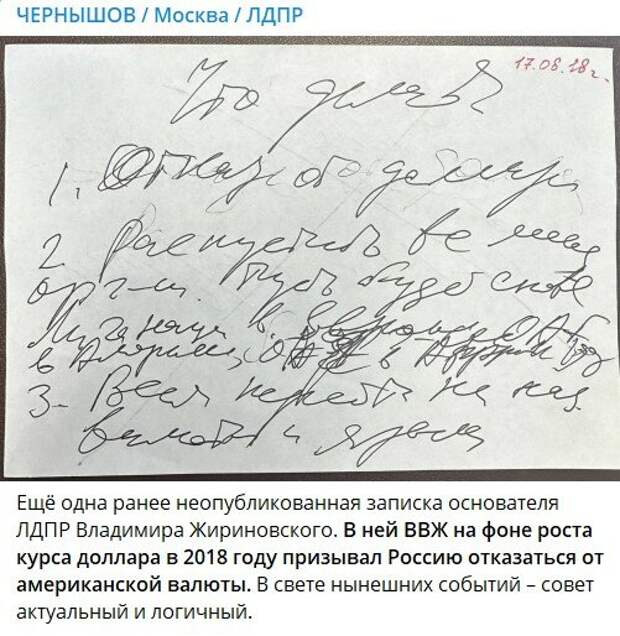 ЧЕРНЫШОВ / Москва / ЛДПР
17.08.18 г.
Что делать?
1. Отказ от доллара
2. Распустить все меж
орг-ии. Пусть будет снова
Лига наций в Европе ОАГ
в Америке в Африке
3. Всем перейти на нац.
валюты и языки
Ещё одна ранее неопубликованная записка основателя
ЛДПР Владимира Жириновского. В ней ВВЖ на фоне роста
курса доллара в 2018 году призывал Россию отказаться от
американской валюты. В свете нынешних событий – совет
актуальный и логичный.